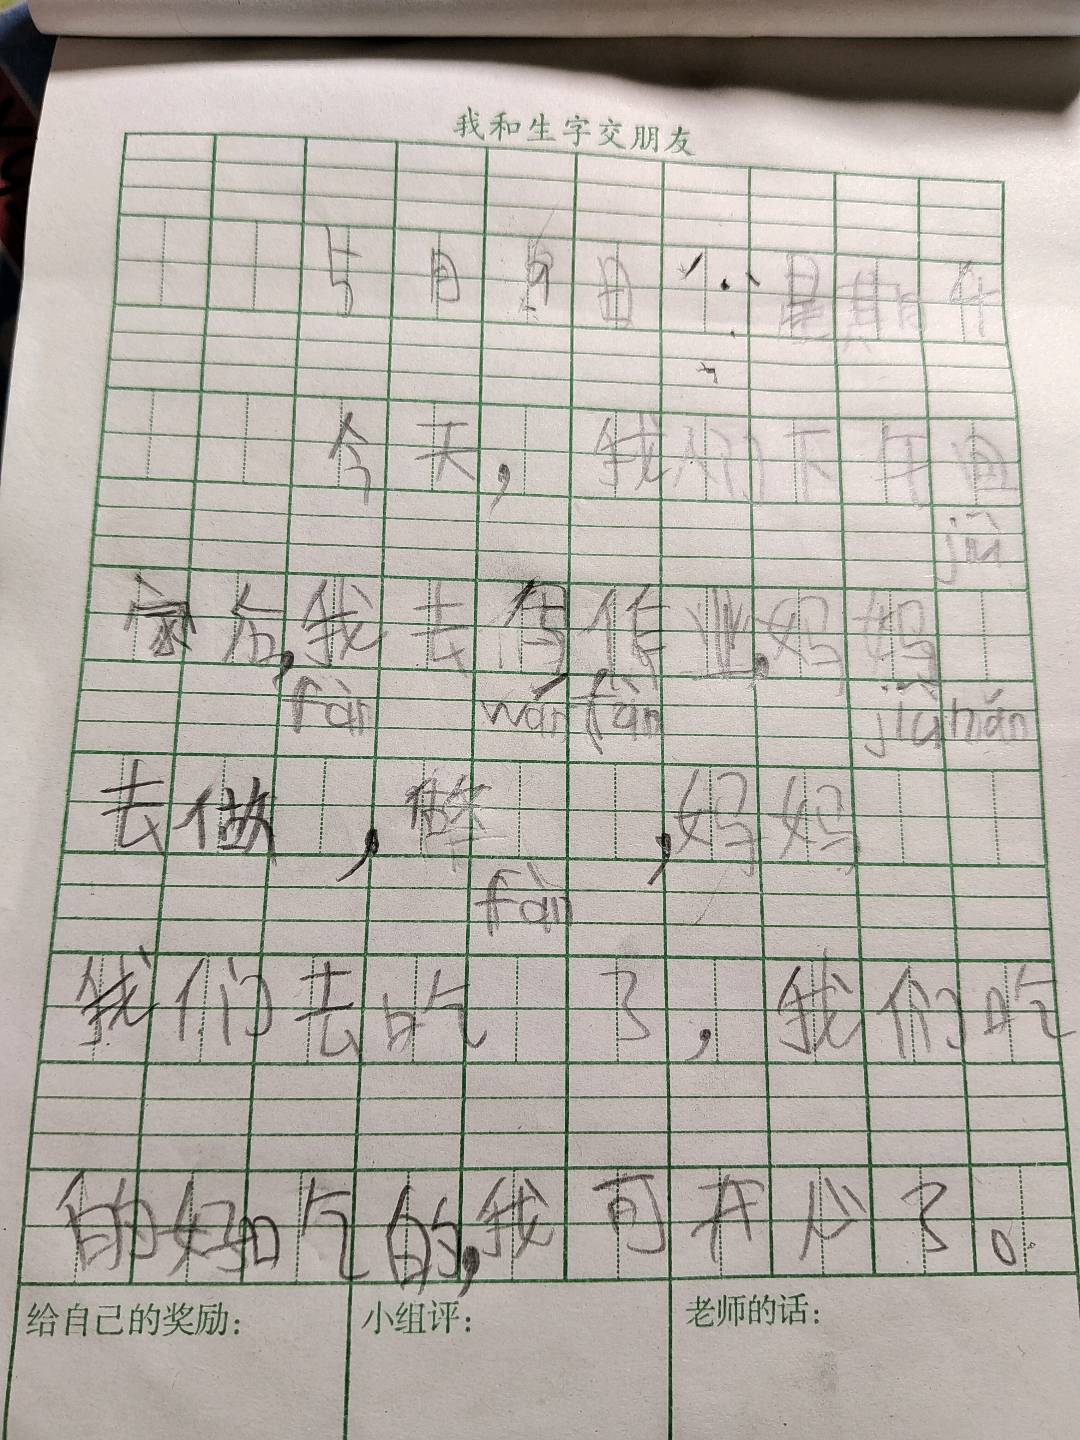 我和生字交朋友
5月 日 星期
今天，我们下午回
jiā
家后，我去写作业，妈妈
fàn wǎn fàn jiǎ hǎn
去做，，妈妈
fàn
我们去吃了，我们吃
的好吃的，我可开心了。
给自己的奖励： 小组评： 老师的话：